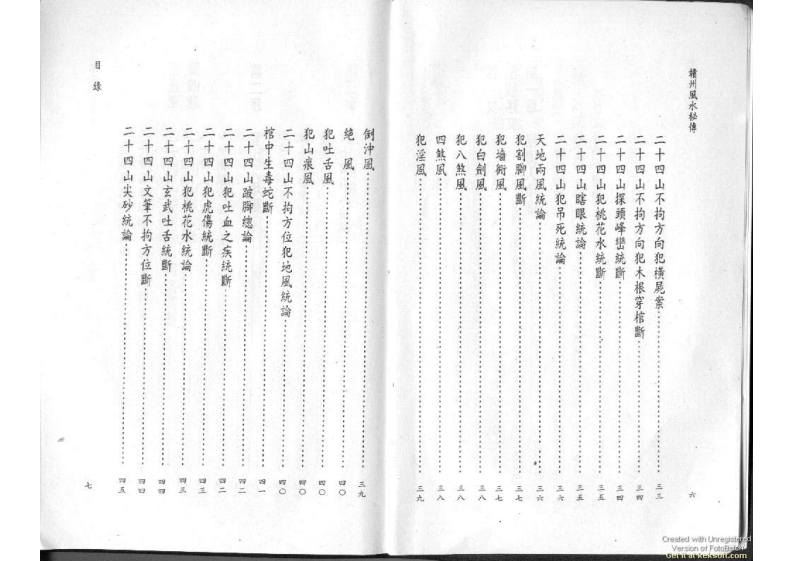 贛州風水秘傳
二十四山不拘方向犯橫屍案 三三
二十四山不拘方向犯木根穿棺斷 三四
二十四山探頭峰巒統斷 三四
二十四山犯桃花水統斷 三五
二十四山瞎眼統論 三五
二十四山犯吊死統論 三六
天地兩風統論 三六
犯割腳風斷 三七
犯墻衕風 三七
犯白劍風 三八
犯八煞風 三八
四煞風 三八
犯淫風 三九
六
倒沖風 三九
絕風 四〇
犯吐舌風 四〇
犯山痕風 四〇
二十四山不拘方位犯地風統論 四〇
棺中生毒蛇斷 四一
二十四山跛腳總論 四二
二十四山犯吐血之疾統斷 四二
二十四山犯虎傷統斷 四三
二十四山犯桃花水統論 四三
二十四山玄武吐舌統斷 四四
二十四山文筆不拘方位斷 四四
二十四山尖砂統論 四五
目錄
七
Created with Unregistered
Version of FotoBatch
Get it at Rekson.com